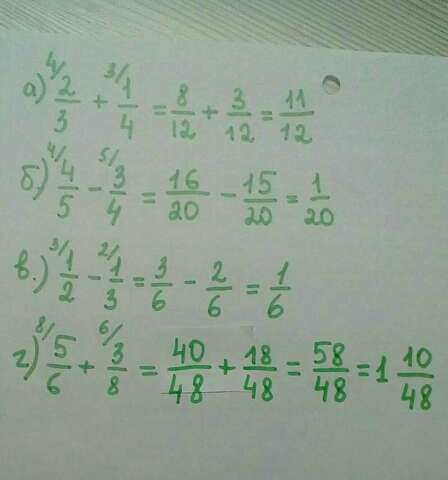 а) 4/ 2/3 + 3/ 1/4 = 8/12 + 3/12 = 11/12
б.) 4/ 4/5 - 5/ 3/4 = 16/20 - 15/20 = 1/20
в.) 3/ 1/2 - 2/ 1/3 = 3/6 - 2/6 = 1/6
г) 8/ 5/6 + 6/ 3/8 = 40/48 + 18/48 = 58/48 = 1 10/48